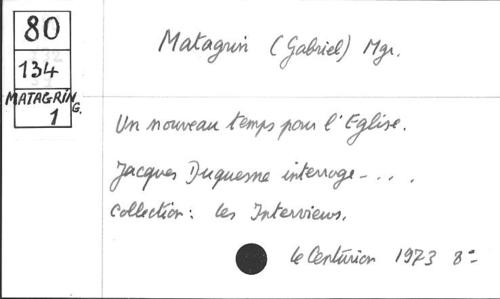 80
134
MATAGRIN G.
1
Matagrin (Gabriel) Mgr.
Un nouveau temps pour l'Eglise.
Jacques Duquesne interroge-...
Collection: les Interviews.
le Centurion 1973 8º